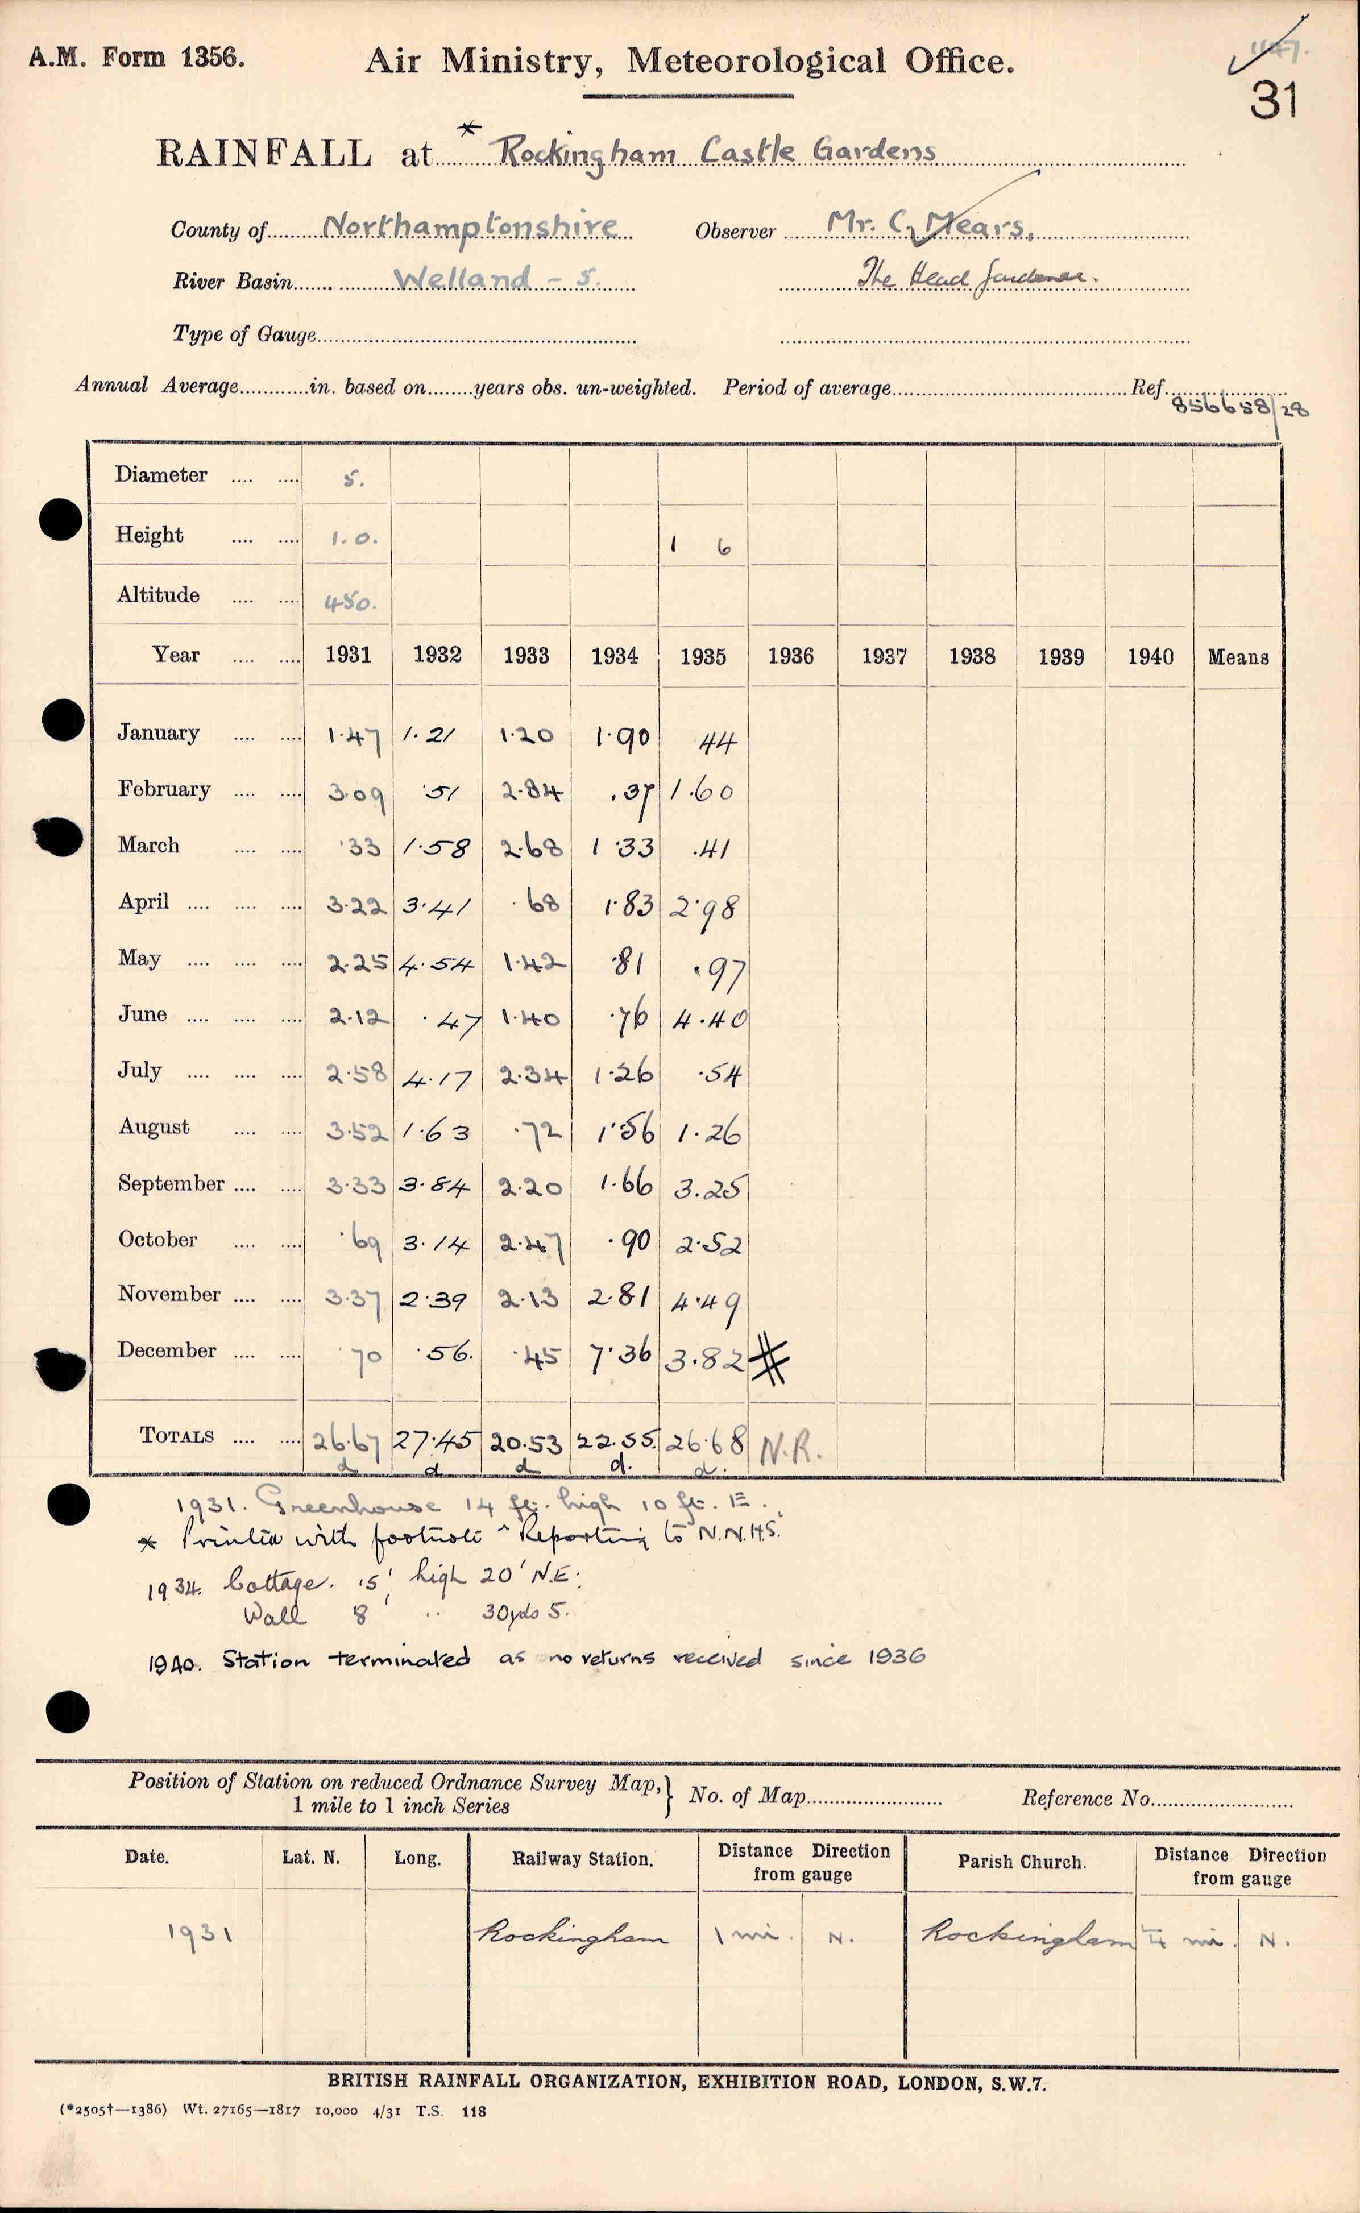 A.M. Form 1356.
Air Ministry, Meteorological Office.
31
RAINFALL at * Rockingham Castle Gardens
County of Northamptonshire Observer Mr. C. Mears.
River Basin Welland - 5. The Head Gardener.
Type of Gauge
Annual Average in. based on years obs. un-weighted. Period of average Ref. 856658/28
Diameter 5.
Height 1.0. 1 6
Altitude 450.
Year 1931 1932 1933 1934 1935 1936 1937 1938 1939 1940 Means
January 1.47 1.21 1.20 1.90 44
February 3.09 .51 2.84 .37 1.60
March .33 1.58 2.68 1.33 .41
April 3.22 3.41 .68 1.83 2.98
May 2.25 4.54 1.42 .81 .97
June 2.12 .47 1.40 .76 4.40
July 2.58 4.17 2.34 1.26 .54
August 3.52 1.63 .72 1.56 1.26
September 3.33 3.84 2.20 1.66 3.25
October .69 3.14 2.47 .90 2.52
November 3.37 2.39 2.13 2.81 4.49
December .70 .56. .45 7.36 3.82 #
TOTALS 26.67 27.45 20.53 22.55. 26.68 N.R.
d d d d. d.
1931. Greenhouse 14 ft. high 10 ft. E.
* Printed with footnote "Reporting to N.N.H.S."
1934. Cottage. 15' high 20' N.E.
Wall 8' " 30yds S.
1940. Station terminated as no returns received since 1936
Position of Station on reduced Ordnance Survey Map, } No. of Map Reference No.
1 mile to 1 inch Series
Date. Lat. N. Long. Railway Station. Distance Direction from gauge Parish Church. Distance Direction from gauge
1931 Rockingham 1 mi. N. Rockingham ¼ mi. N.
BRITISH RAINFALL ORGANIZATION, EXHIBITION ROAD, LONDON, S.W.7.
(*2505†—1386) Wt. 27165—1817 10,000 4/31 T.S. 118